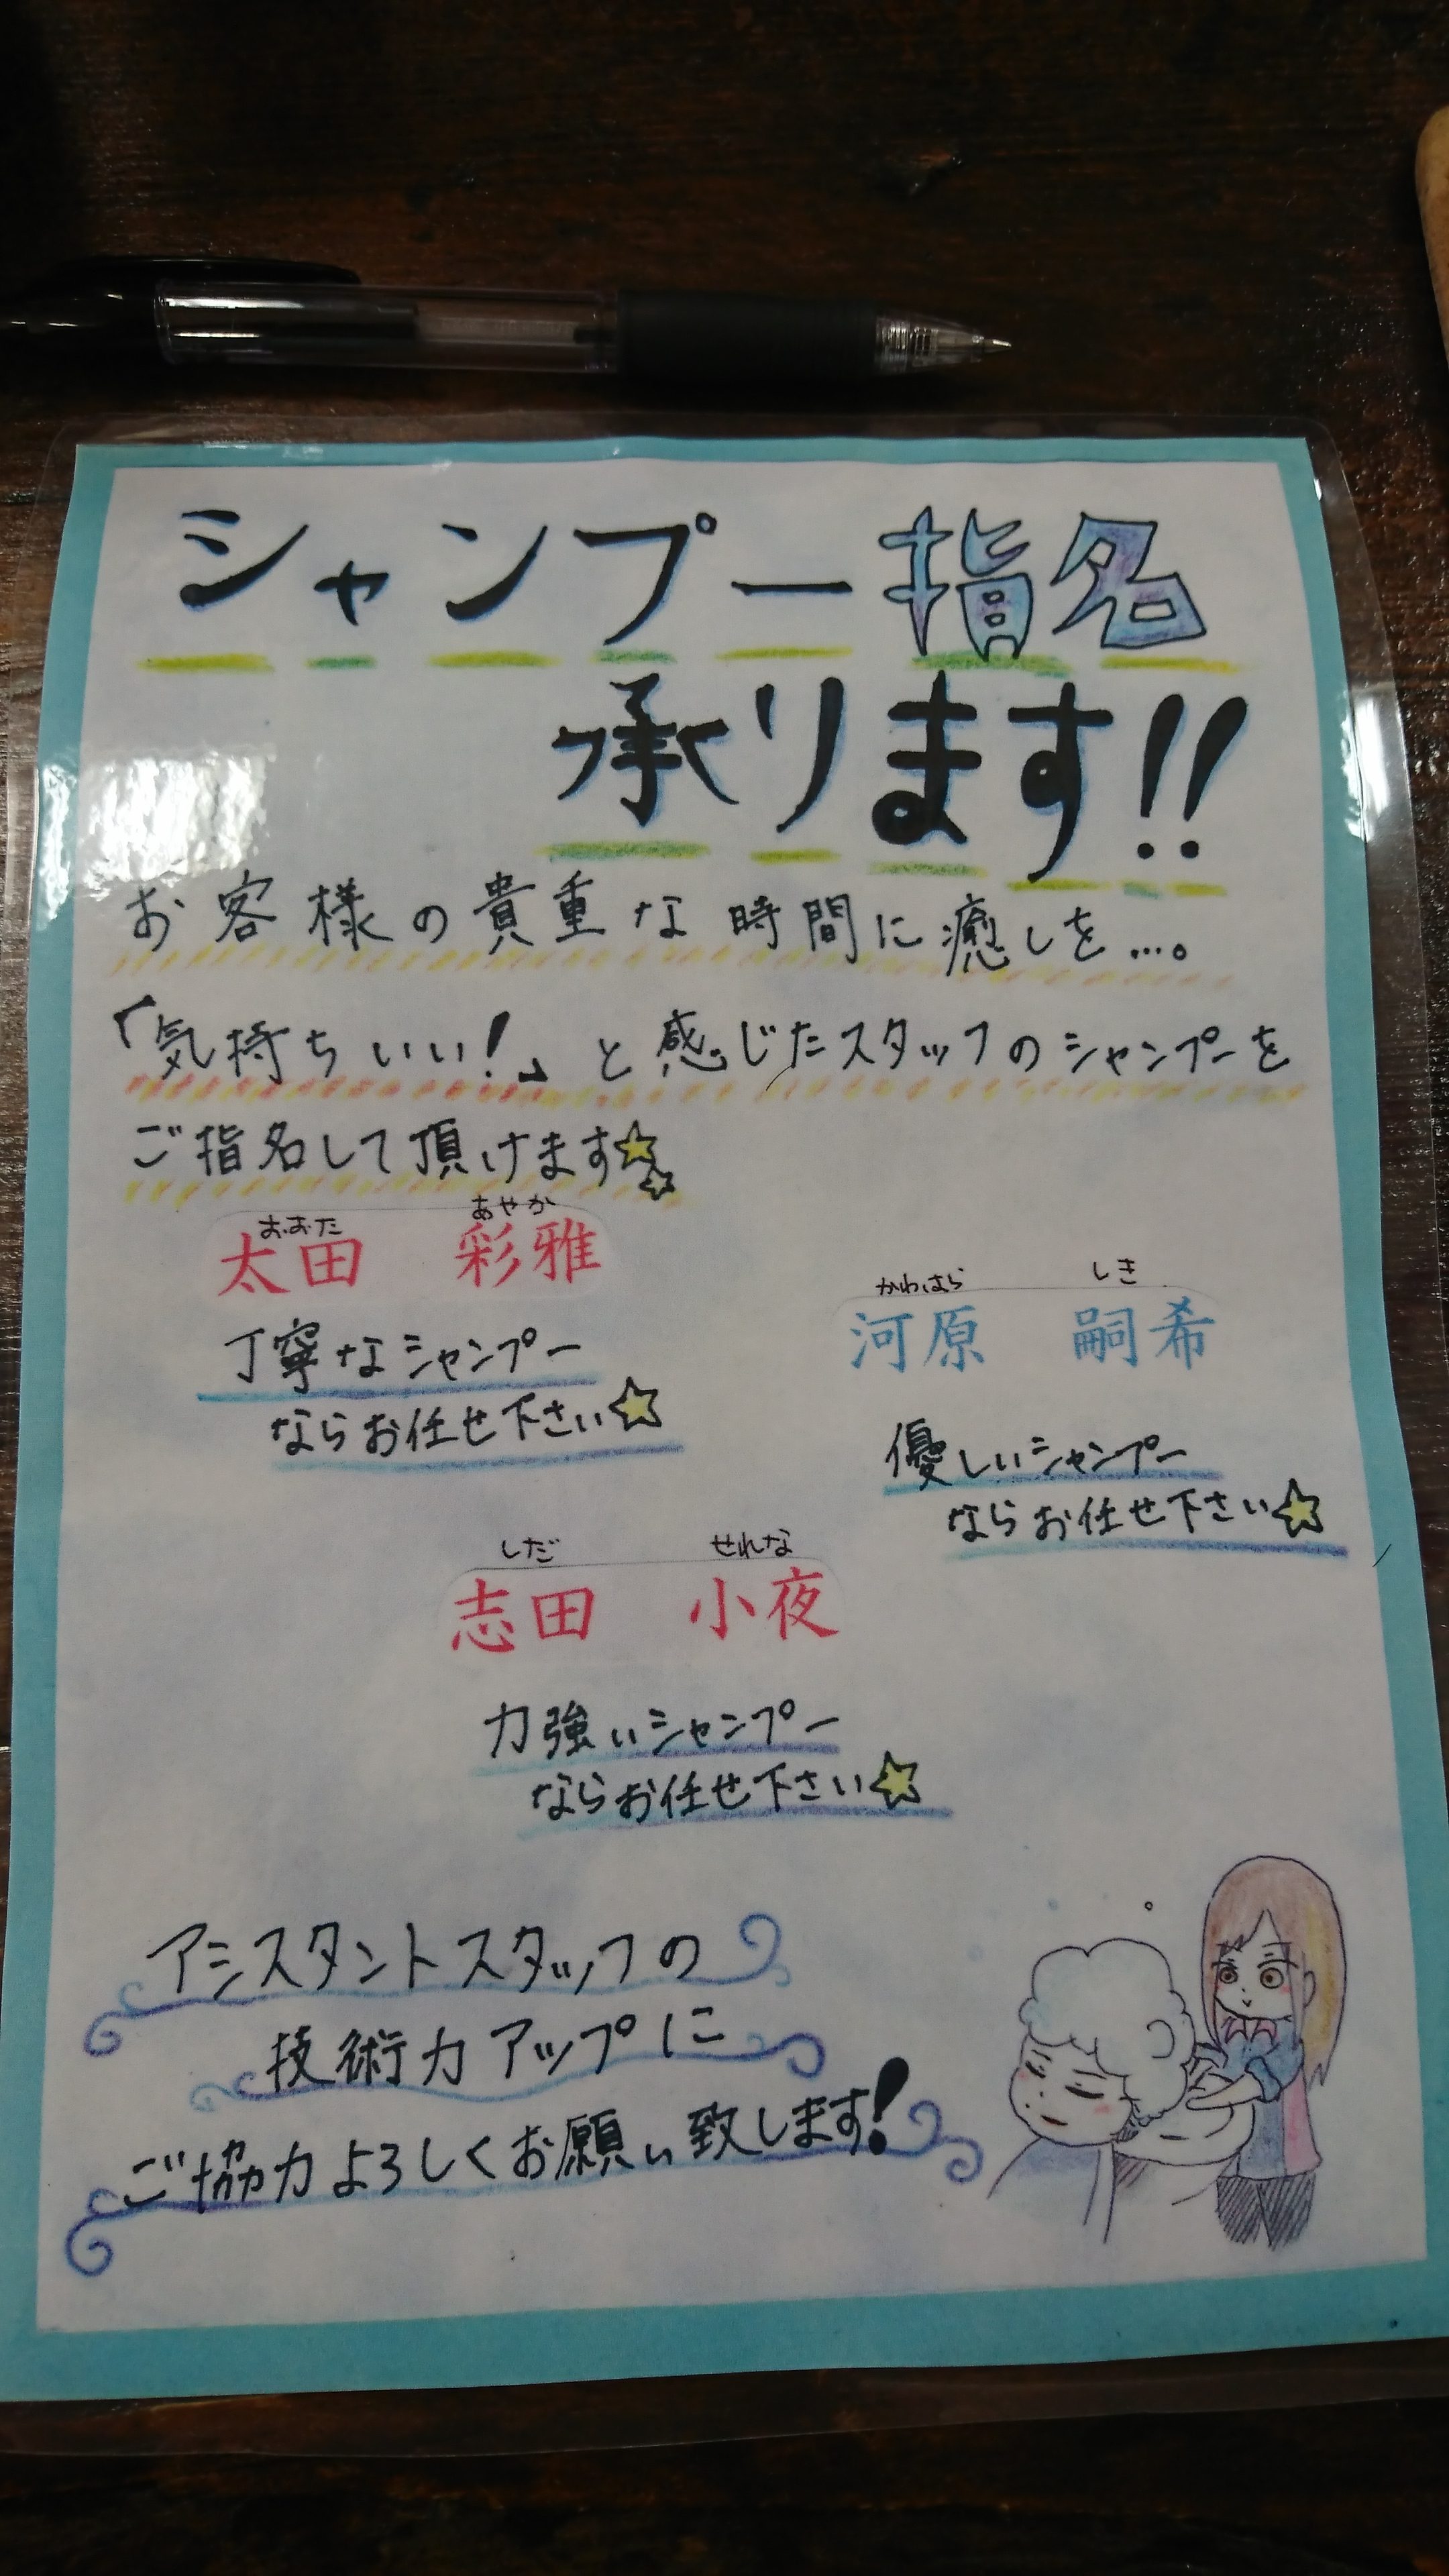 シャンプー指名
承ります!!
お客様の貴重な時間に癒しを…。
「気持ちいい!」と感じたスタッフのシャンプーを
ご指名して頂けます☆☆
おおた あやか
太田 彩雅
丁寧なシャンプー
ならお任せ下さい☆
かわはら しき
河原 嗣希
優しいシャンプー
ならお任せ下さい☆
しだ せれな
志田 小夜
力強いシャンプー
ならお任せ下さい☆
アシスタントスタッフの
技術力アップに
ご協力よろしくお願い致します!